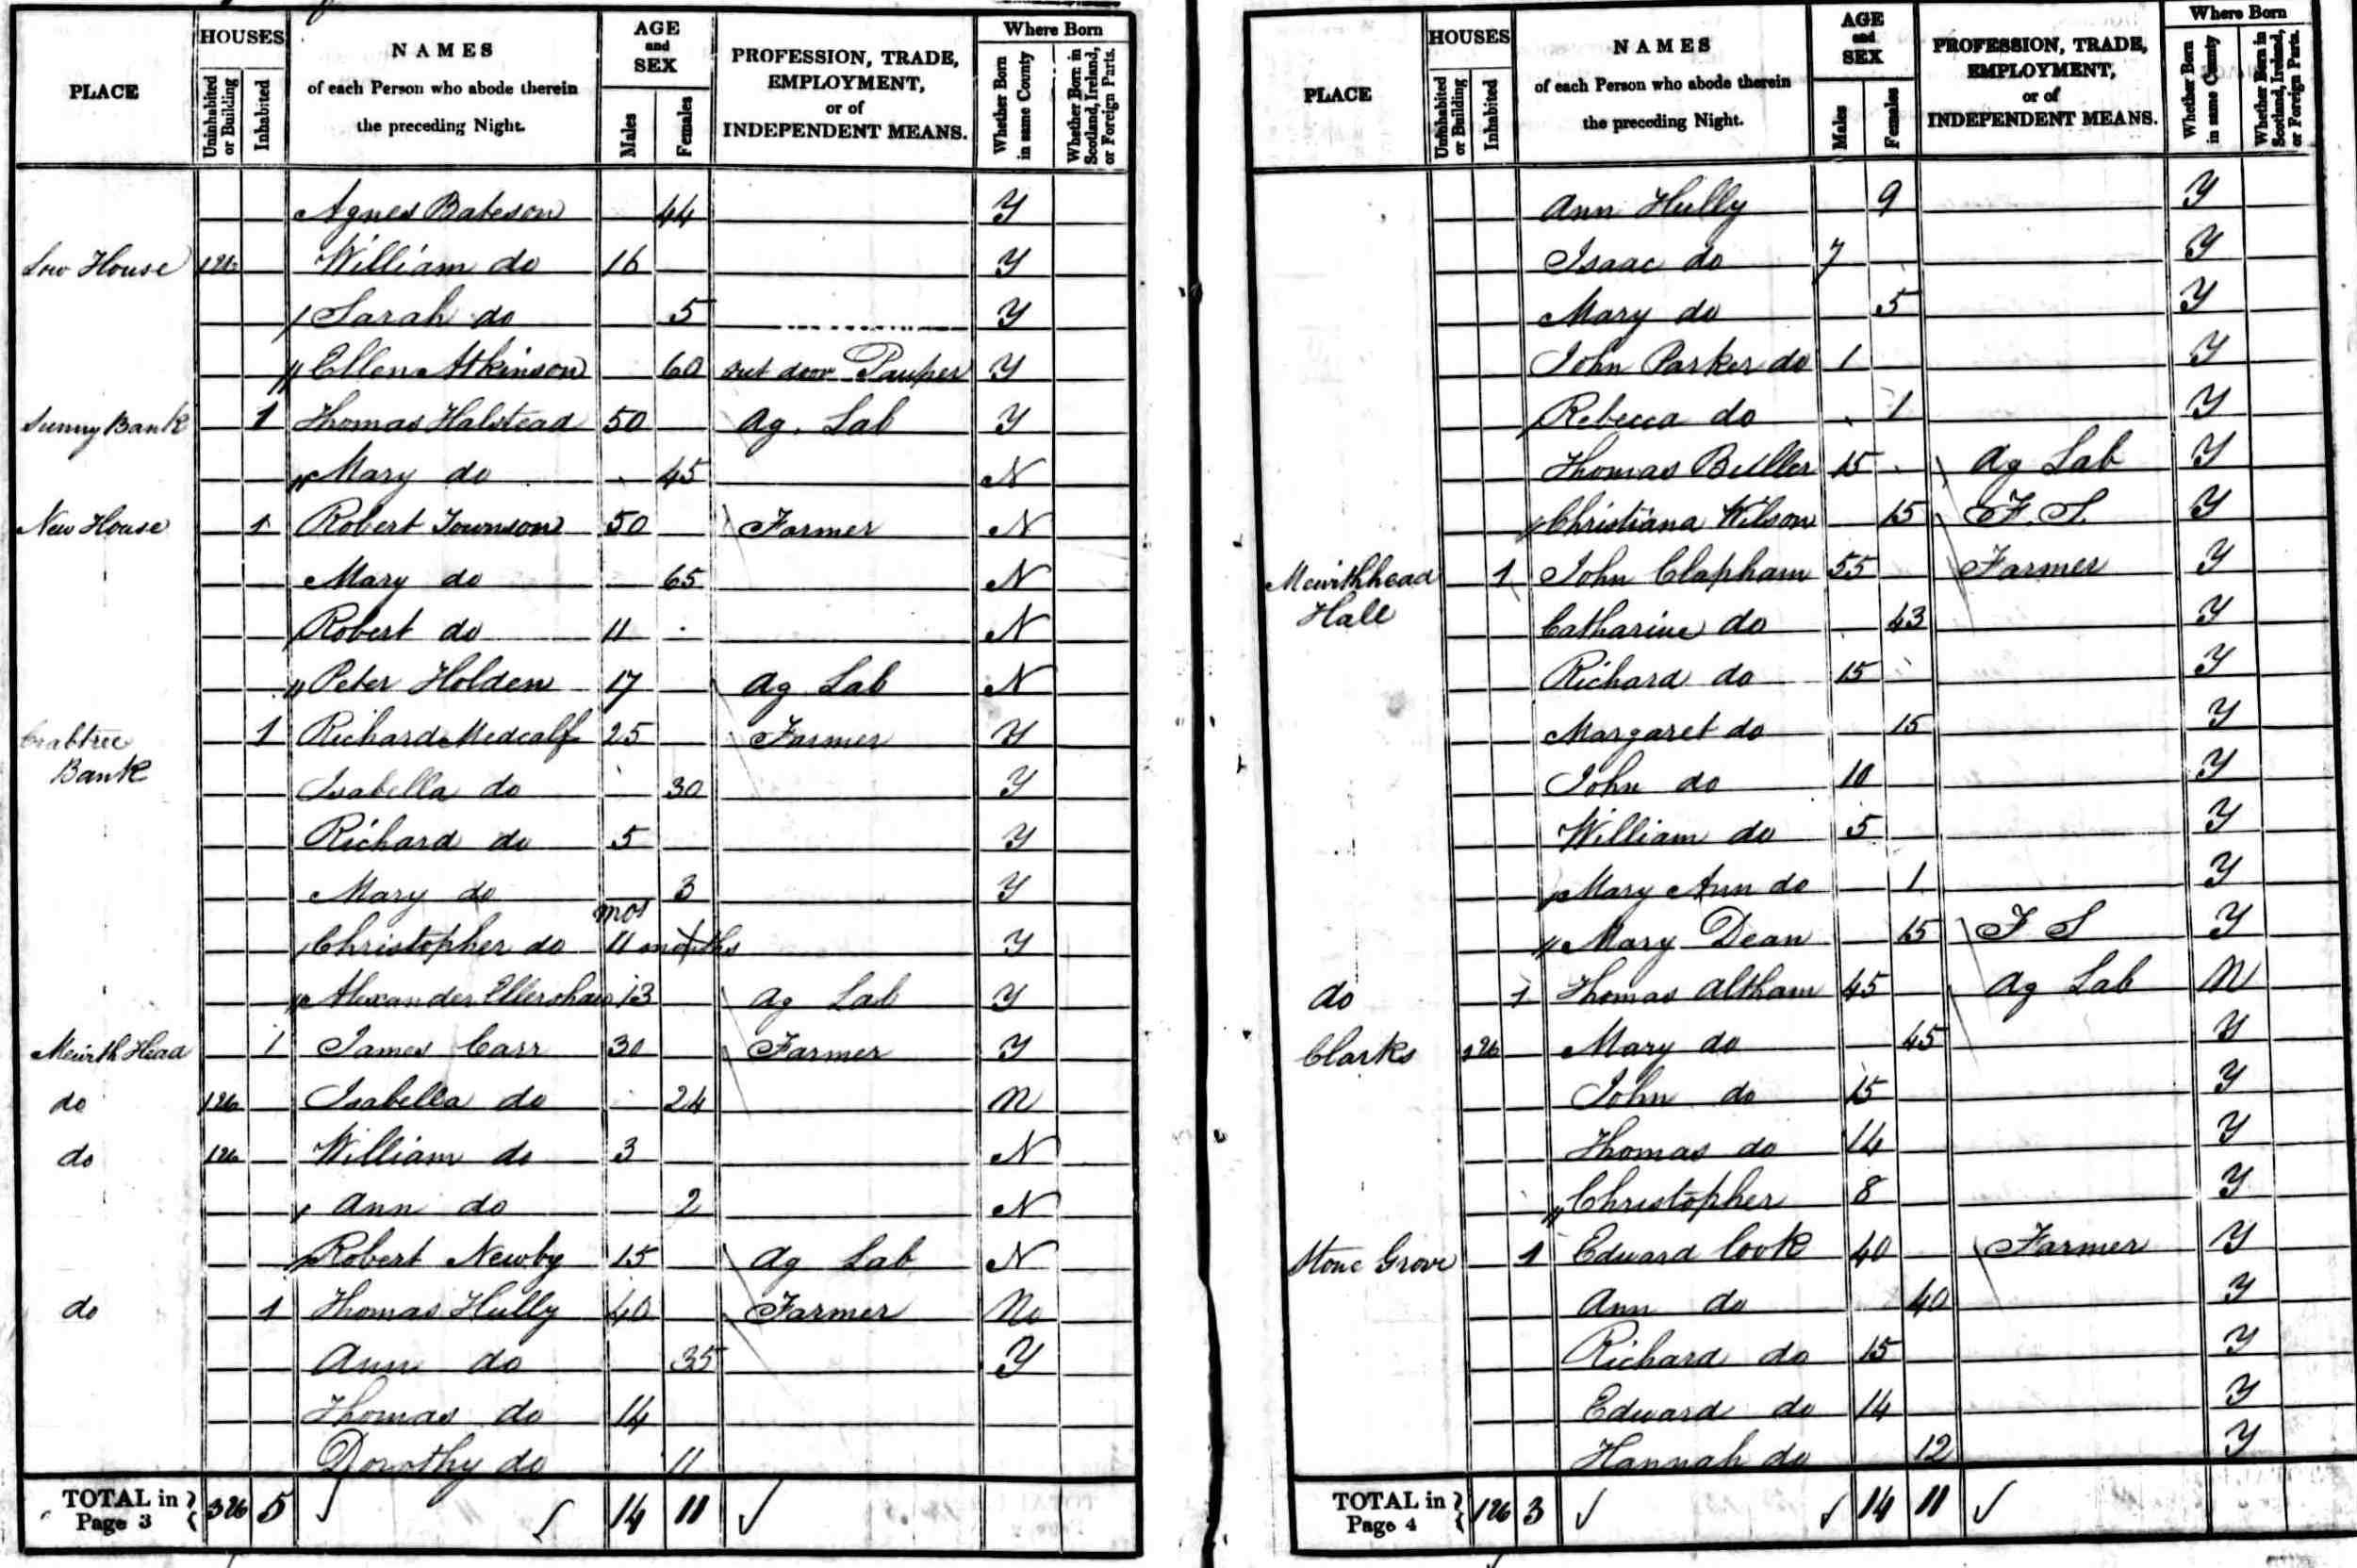 PLACE HOUSES Uninhabited or Building Inhabited NAMES of each Person who abode therein the preceding Night. AGE and SEX Males Females PROFESSION, TRADE, EMPLOYMENT, or of INDEPENDENT MEANS. Where Born Whether Born in same County Whether Born in Scotland, Ireland, or Foreign Parts.
Agnes Bateson 44 Y
Low House 1 u William do 16 Y
Sarah do 5 Y
Ellen Atkinson 60 out door Pauper Y
Sunny Bank 1 Thomas Halstead 50 Ag. Lab Y
Mary do 45 N
New House 1 Robert Townson 50 Farmer N
Mary do 65 N
Robert do 11 N
Peter Holden 17 Ag Lab N
Crabtree Bank 1 Richard Medcalf 25 Farmer Y
Isabella do 30 Y
Richard do 5 Y
Mary do 3 Y
Christopher do 11 months mos Y
Alexander Ellershaw 13 Ag Lab Y
Mewith Head 1 James Carr 30 Farmer Y
do 1 u Isabella do 24 N
do 1 u William do 3 N
Ann do 2 N
Robert Newby 15 Ag Lab N
do 1 Thomas Hully 40 Farmer No
Ann do 35 Y
Thomas do 14
Dorothy do 11
TOTAL in Page 3 3 u 5 14 11
PLACE HOUSES Uninhabited or Building Inhabited NAMES of each Person who abode therein the preceding Night. AGE and SEX Males Females PROFESSION, TRADE, EMPLOYMENT, or of INDEPENDENT MEANS. Where Born Whether Born in same County Whether Born in Scotland, Ireland, or Foreign Parts.
Ann Hully 9 Y
Isaac do 7 Y
Mary do 5 Y
John Parker do 1 Y
Rebecca do 1 Y
Thomas Butler 15 Ag Lab Y
Christiana Wilson 15 F. S. Y
Mewithhead Hall 1 John Clapham 55 Farmer Y
Catharine do 43 Y
Richard do 15 Y
Margaret do 15 Y
John do 10 Y
William do 5 Y
Mary Ann do 1 Y
Mary Dean 15 F S Y
do 1 Thomas Altham 45 Ag Lab N
Clarks 1 u Mary do 45 Y
John do 15 Y
Thomas do 14 Y
Christopher 8 Y
Stone Grove 1 Edward Cook 40 Farmer Y
Ann do 40 Y
Richard do 15 Y
Edward do 14 Y
Hannah do 12 Y
TOTAL in Page 4 1 u 3 14 11